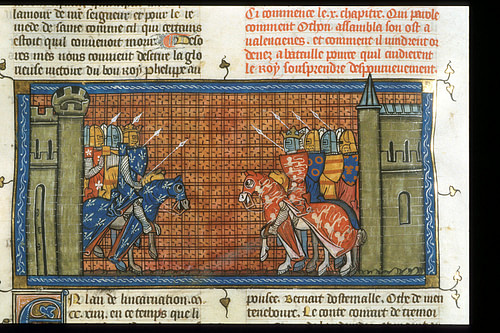 lamour de nre seigneur et pour le re
mede de saine comme cil qui certains
estoit quil convenoit mourir. Deso
res mes nous convient descrire la glo
rieuse victoire du bon Roy phelippe au
Ci commence le .x. chapitre. Qui parole
comment Othon assambla son ost a
valenciennes. et comment il vindrent or
dene a bataille pource quil cuidierent
le Roy sousprendre despourveuement.
En lan de lincarnation .m.
.cc. xiiii. en ce temps que li
pouse. Bernart dostemalle. Othe de
teneboure. Le conte conrat de tremoi